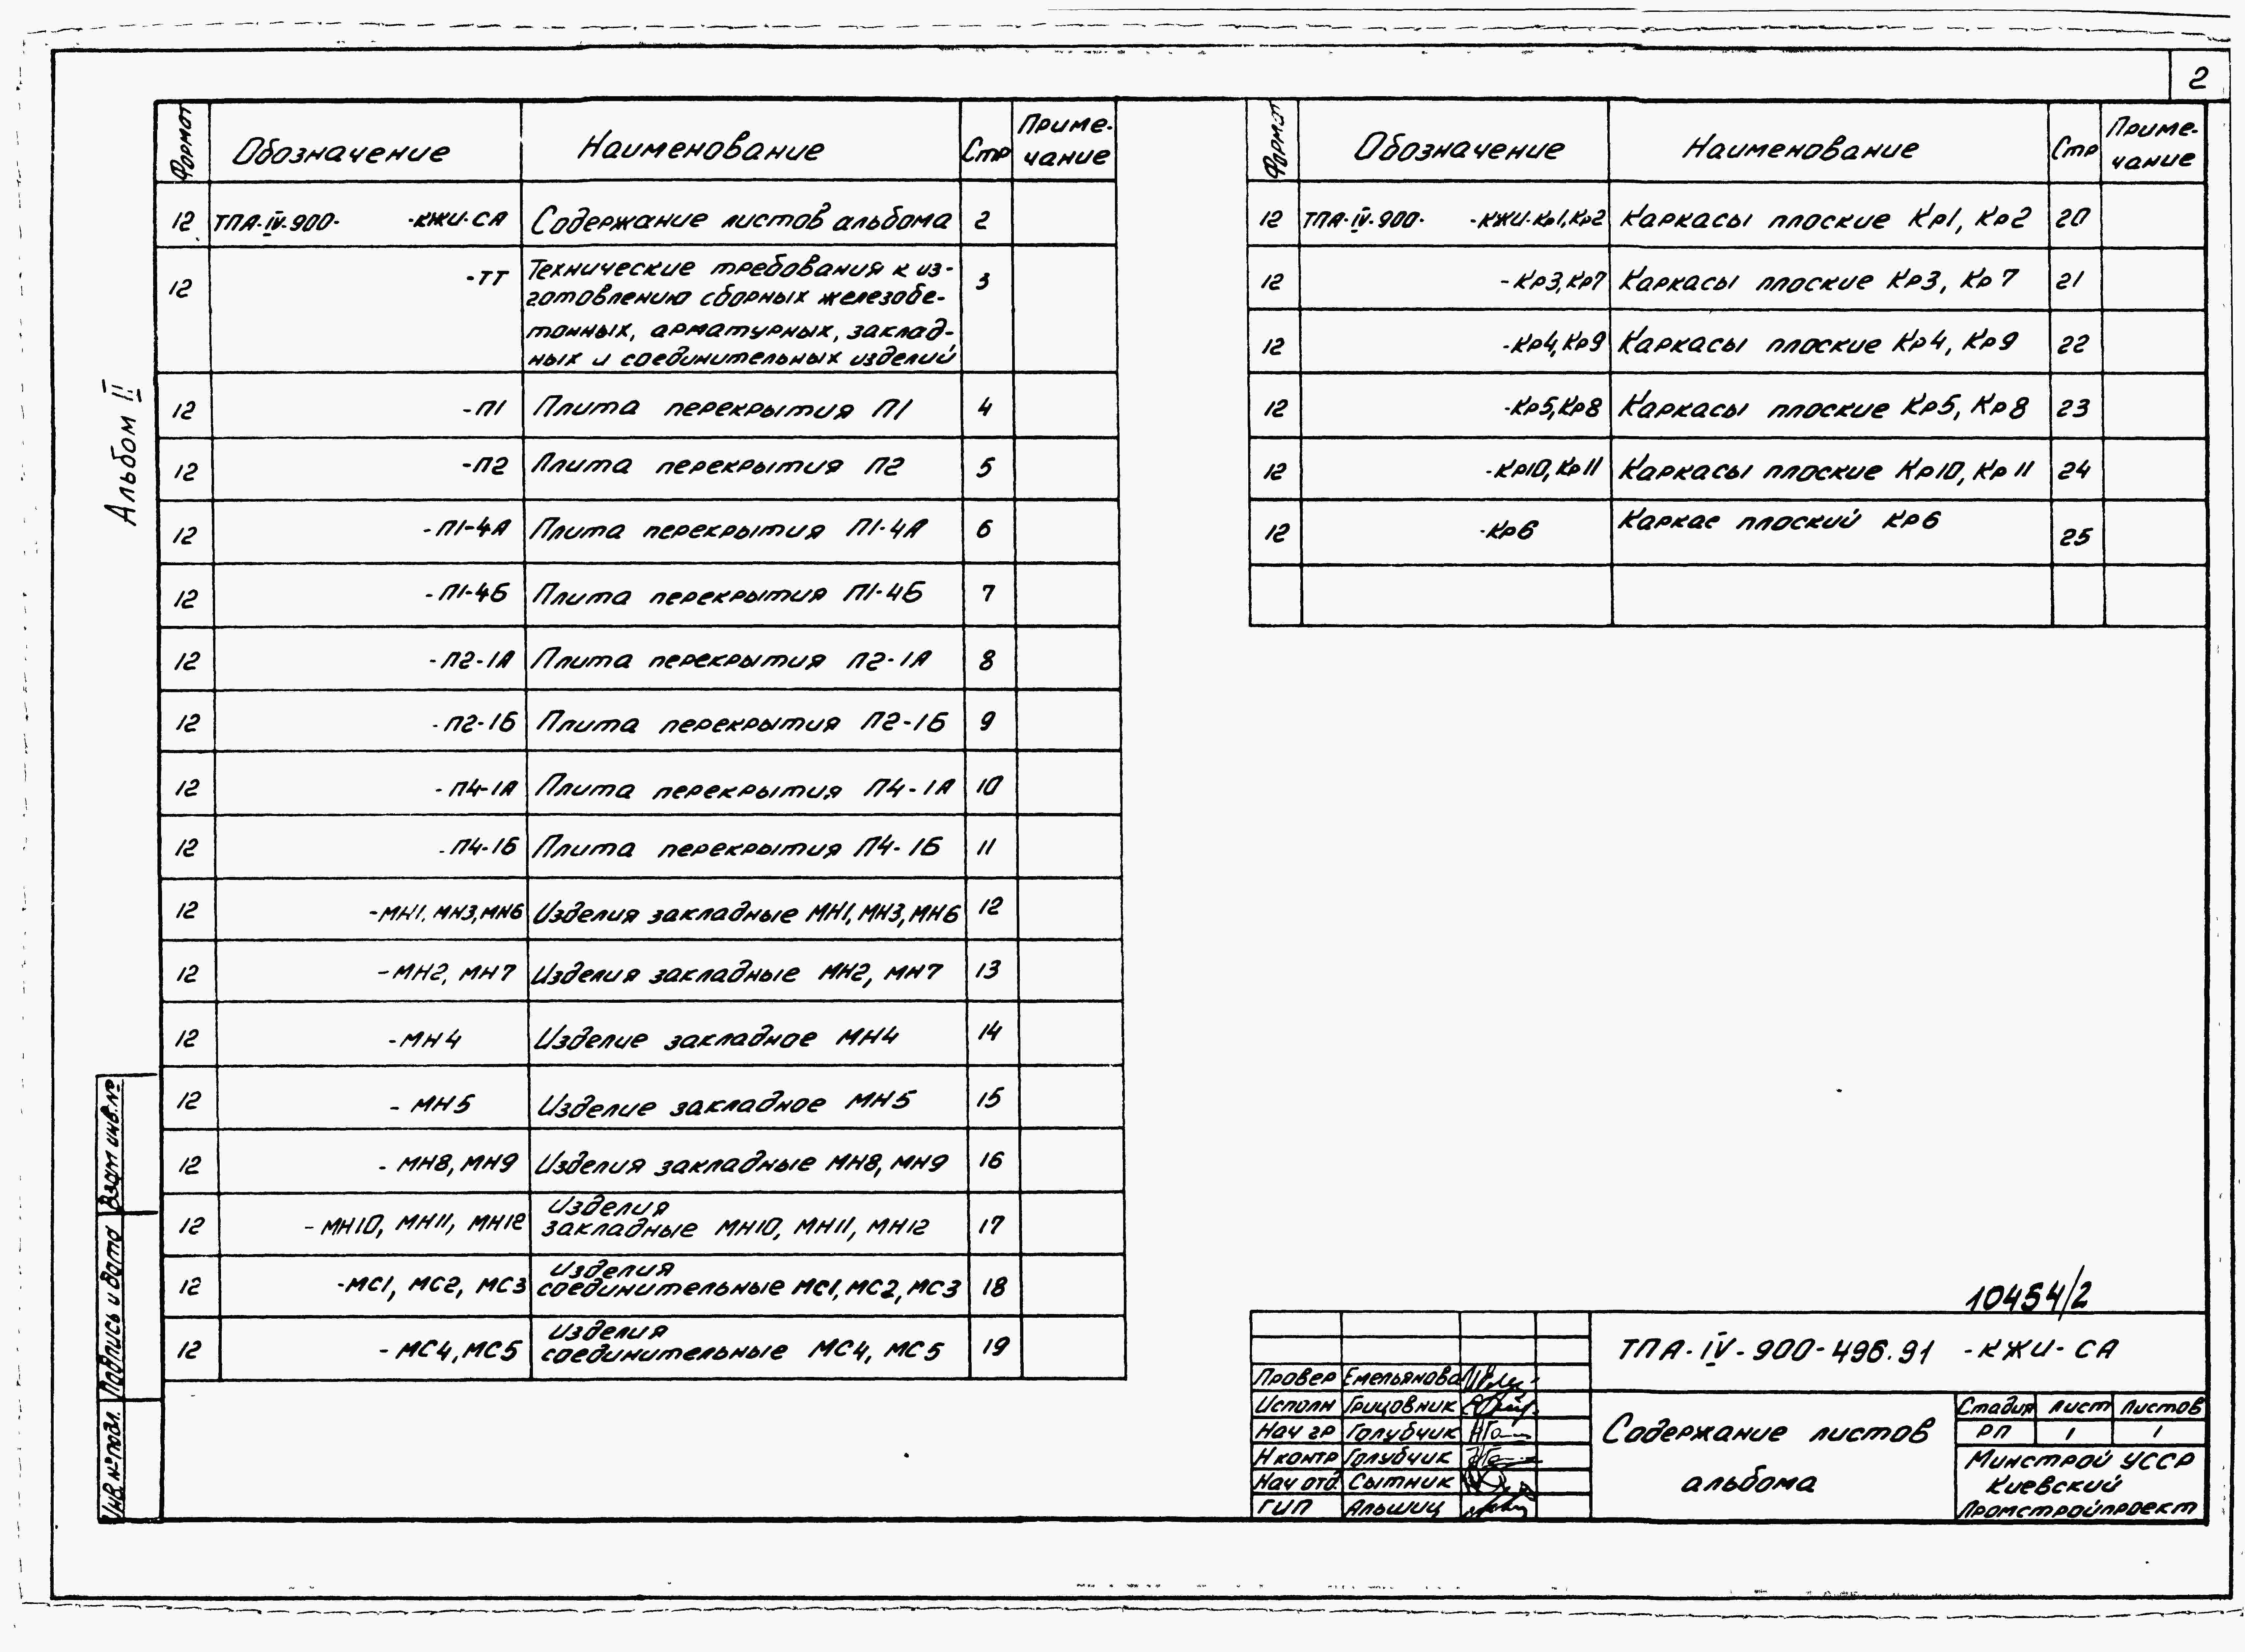 2
Альбом II
Формат Обозначение Наименование Стр Приме-
чание
12 ТПА-IV-900- -КЖИ-СА Содержание листов альбома 2
12 -ТТ Технические требования к из- 3
готовлению сборных железобе-
тонных, арматурных, заклад-
ных и соединительных изделий
12 -П1 Плита перекрытия П1 4
12 -П2 Плита перекрытия П2 5
12 -П1-4А Плита перекрытия П1-4А 6
12 -П1-4Б Плита перекрытия П1-4Б 7
12 -П2-1А Плита перекрытия П2-1А 8
12 -П2-1Б Плита перекрытия П2-1Б 9
12 -П4-1А Плита перекрытия П4-1А 10
12 -П4-1Б Плита перекрытия П4-1Б 11
12 -МН1, МН3, МН6 Изделия закладные МН1, МН3, МН6 12
12 -МН2, МН7 Изделия закладные МН2, МН7 13
12 -МН4 Изделие закладное МН4 14
12 -МН5 Изделие закладное МН5 15
12 -МН8, МН9 Изделия закладные МН8, МН9 16
12 -МН10, МН11, МН12 Изделия
закладные МН10, МН11, МН12 17
12 -МС1, МС2, МС3 Изделия
соединительные МС1, МС2, МС3 18
12 -МС4, МС5 Изделия
соединительные МС4, МС5 19
Формат Обозначение Наименование Стр Приме-
чание
12 ТПА-IV-900- -КЖИ-Кр1, Кр2 Каркасы плоские Кр1, Кр2 20
12 -Кр3, Кр7 Каркасы плоские Кр3, Кр7 21
12 -Кр4, Кр9 Каркасы плоские Кр4, Кр9 22
12 -Кр5, Кр8 Каркасы плоские Кр5, Кр8 23
12 -Кр10, Кр11 Каркасы плоские Кр10, Кр11 24
12 -Кр6 Каркас плоский Кр6 25
Инв. № подл. Подпись и дата Взам инв. №
10454/2
ТПА-IV-900-496.91 -КЖИ-СА
Провер Емельянова
Исполн Грицовник
Нач гр Голубчик
Н контр Голубчик
Нач отд Сытник
ГИП Альшиц
Содержание листов
альбома
Стадия Лист Листов
РП 1 1
Минстрой УССР
Киевский
Промстройпроект